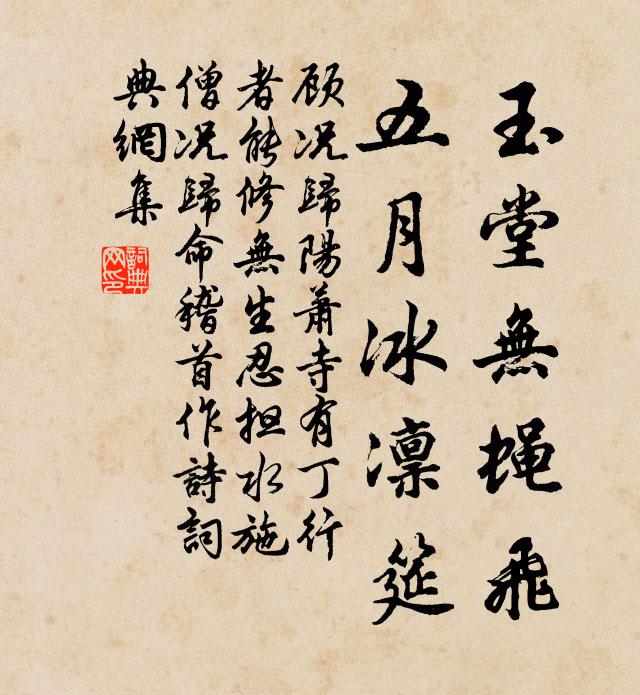 玉堂無蝇飛
五月冰凛筵
顾况歸陽蕭寺有丁行
者能修無生忍担水施
僧况歸命稽首作詩詞
典網集
詞典
网印